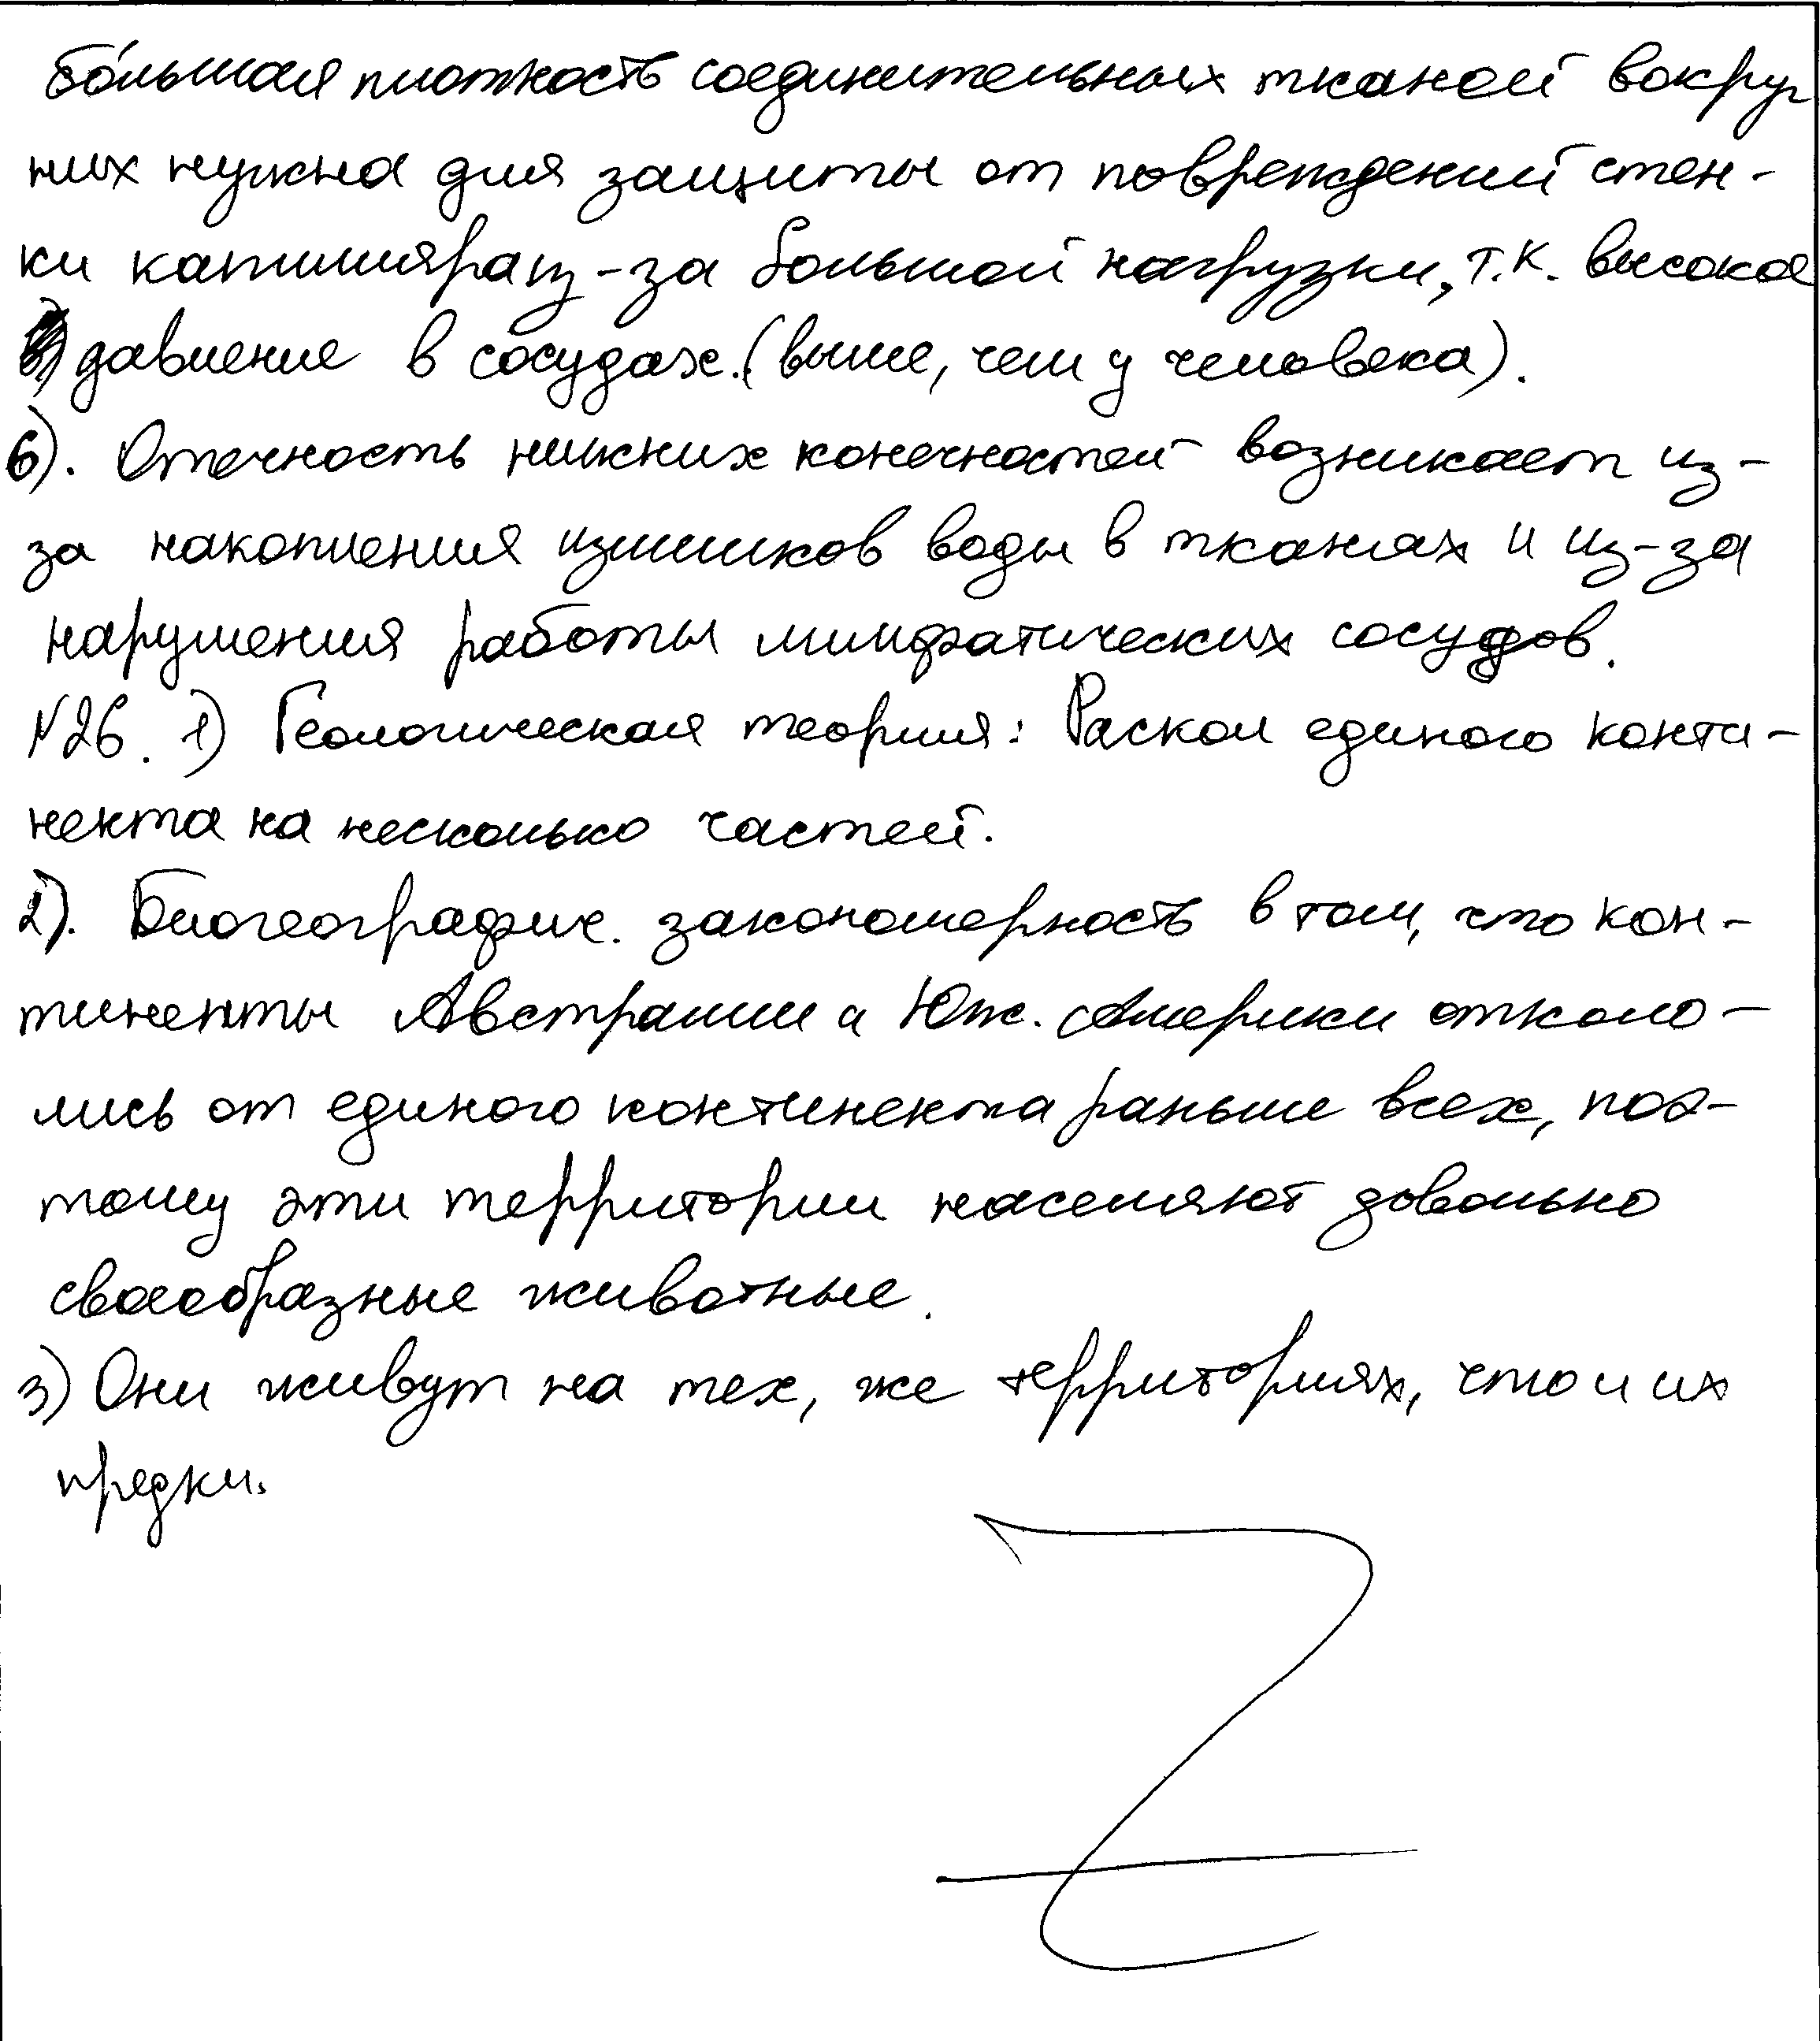 бо́льшая плотность соединительных тканей вокруг
них нужна для защиты от повреждений стен-
ки капилляра из-за большой нагрузки, т.к. высокое
давление в сосудах. (выше, чем у человека).
6). Отечность нижних конечностей возникает из-
за накопления излишков воды в тканях и из-за
нарушения работы лимфатических сосудов.
N26. 1) Геологическая теория: Раскол единого конти-
нента на несколько частей.
2). Биогеографич. закономерность в том, что кон-
тиненты Австралии и Юж. Америки отколо-
лись от единого континента раньше всех, поэ-
тому эти территории населяют довольно
своеобразные животные.
3) Они живут на тех, же территориях, что и их
предки.